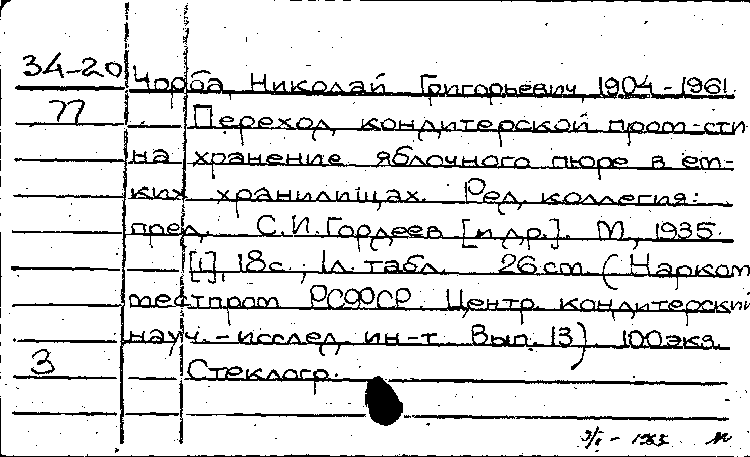 34-20 Чорба, Николай Григорьевич, 1904-1961.
П Переход кондитерской пром-сти
на хранение яблочного пюре в ем-
ких хранилищах. Ред. коллегия:
пред. С.И. Гордеев [и др.]. М., 1935.
[1], 18 с.; 1 л. табл. 26 см. (Нарком
местпром РСФСР. Центр. кондитерский
науч.-исслед. ин-т. Вып. 13) 100 экз.
З Стеклогр.